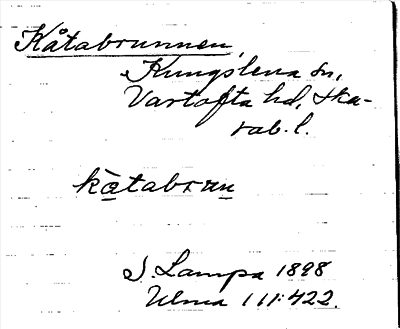 Kåtabrunnen,
Kungslena sn,
Vartofta hd, Ska-
rab. l.
kåtabrun
S. Lampa 1898
Ulma 111:422.